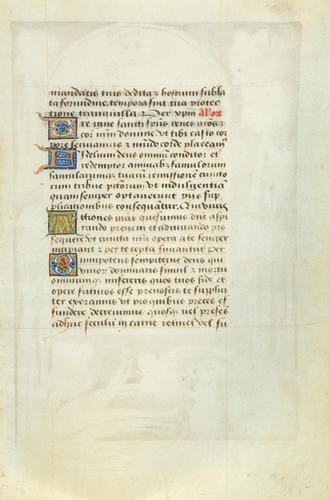 mandatis tuis dedita & hostium subla
ta formidine tempora sint tua protec
tione tranquilla Per xpm Aliox
Vre igne sancti spus renes nros &
cor nrm domine ut tibi casto cor
pore seruiamus & mundo corde placeam
Fidelium deus omniu conditor et
redemptor animabs famulorum
famularumqz tuaru remissione cunc
torum tribue pctorum ut indulgentia
quam semper optauerut piis sup
plicationibus consequatur Qui viuis
Actiones nras quesumus dne aspi
rando preueni et adiuuando pro
sequere ut cuncta nra opera a te semper
incipiant & per te cepta finiantur Per
Omnipotens sempiterne deus qui
viuor dominaris simul & mortu
omniumqz misereris quos tuos fide et
opere futuros esse prenoscis te supplici
ter exoramus ut pro quibus preces ef
fundere decreuimus quosqz vel presens
adhuc seculu in carne retinet vel fu